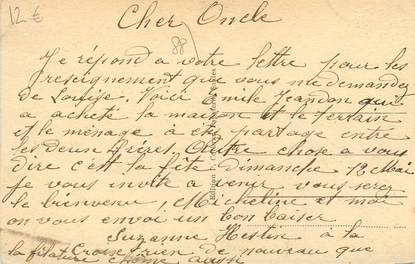 12 €
Cher Oncle
Je répond a votre lettre pour les
renseignement que vous me demandez
de Louise. Voici Emile Jeandon qui
a acheté la maison et le terrain
et le ménage à été partagé entre
les deux frères. Outre chose a vous
dire c'est la fête Dimanche 12 Mai
je vous invite a venir vous serez
le bienvenu, Micheline et moi
on vous envoi un bon baiser
Suzanne Hestin à la
Croix rien de nouveau que
la filature chôme aussi